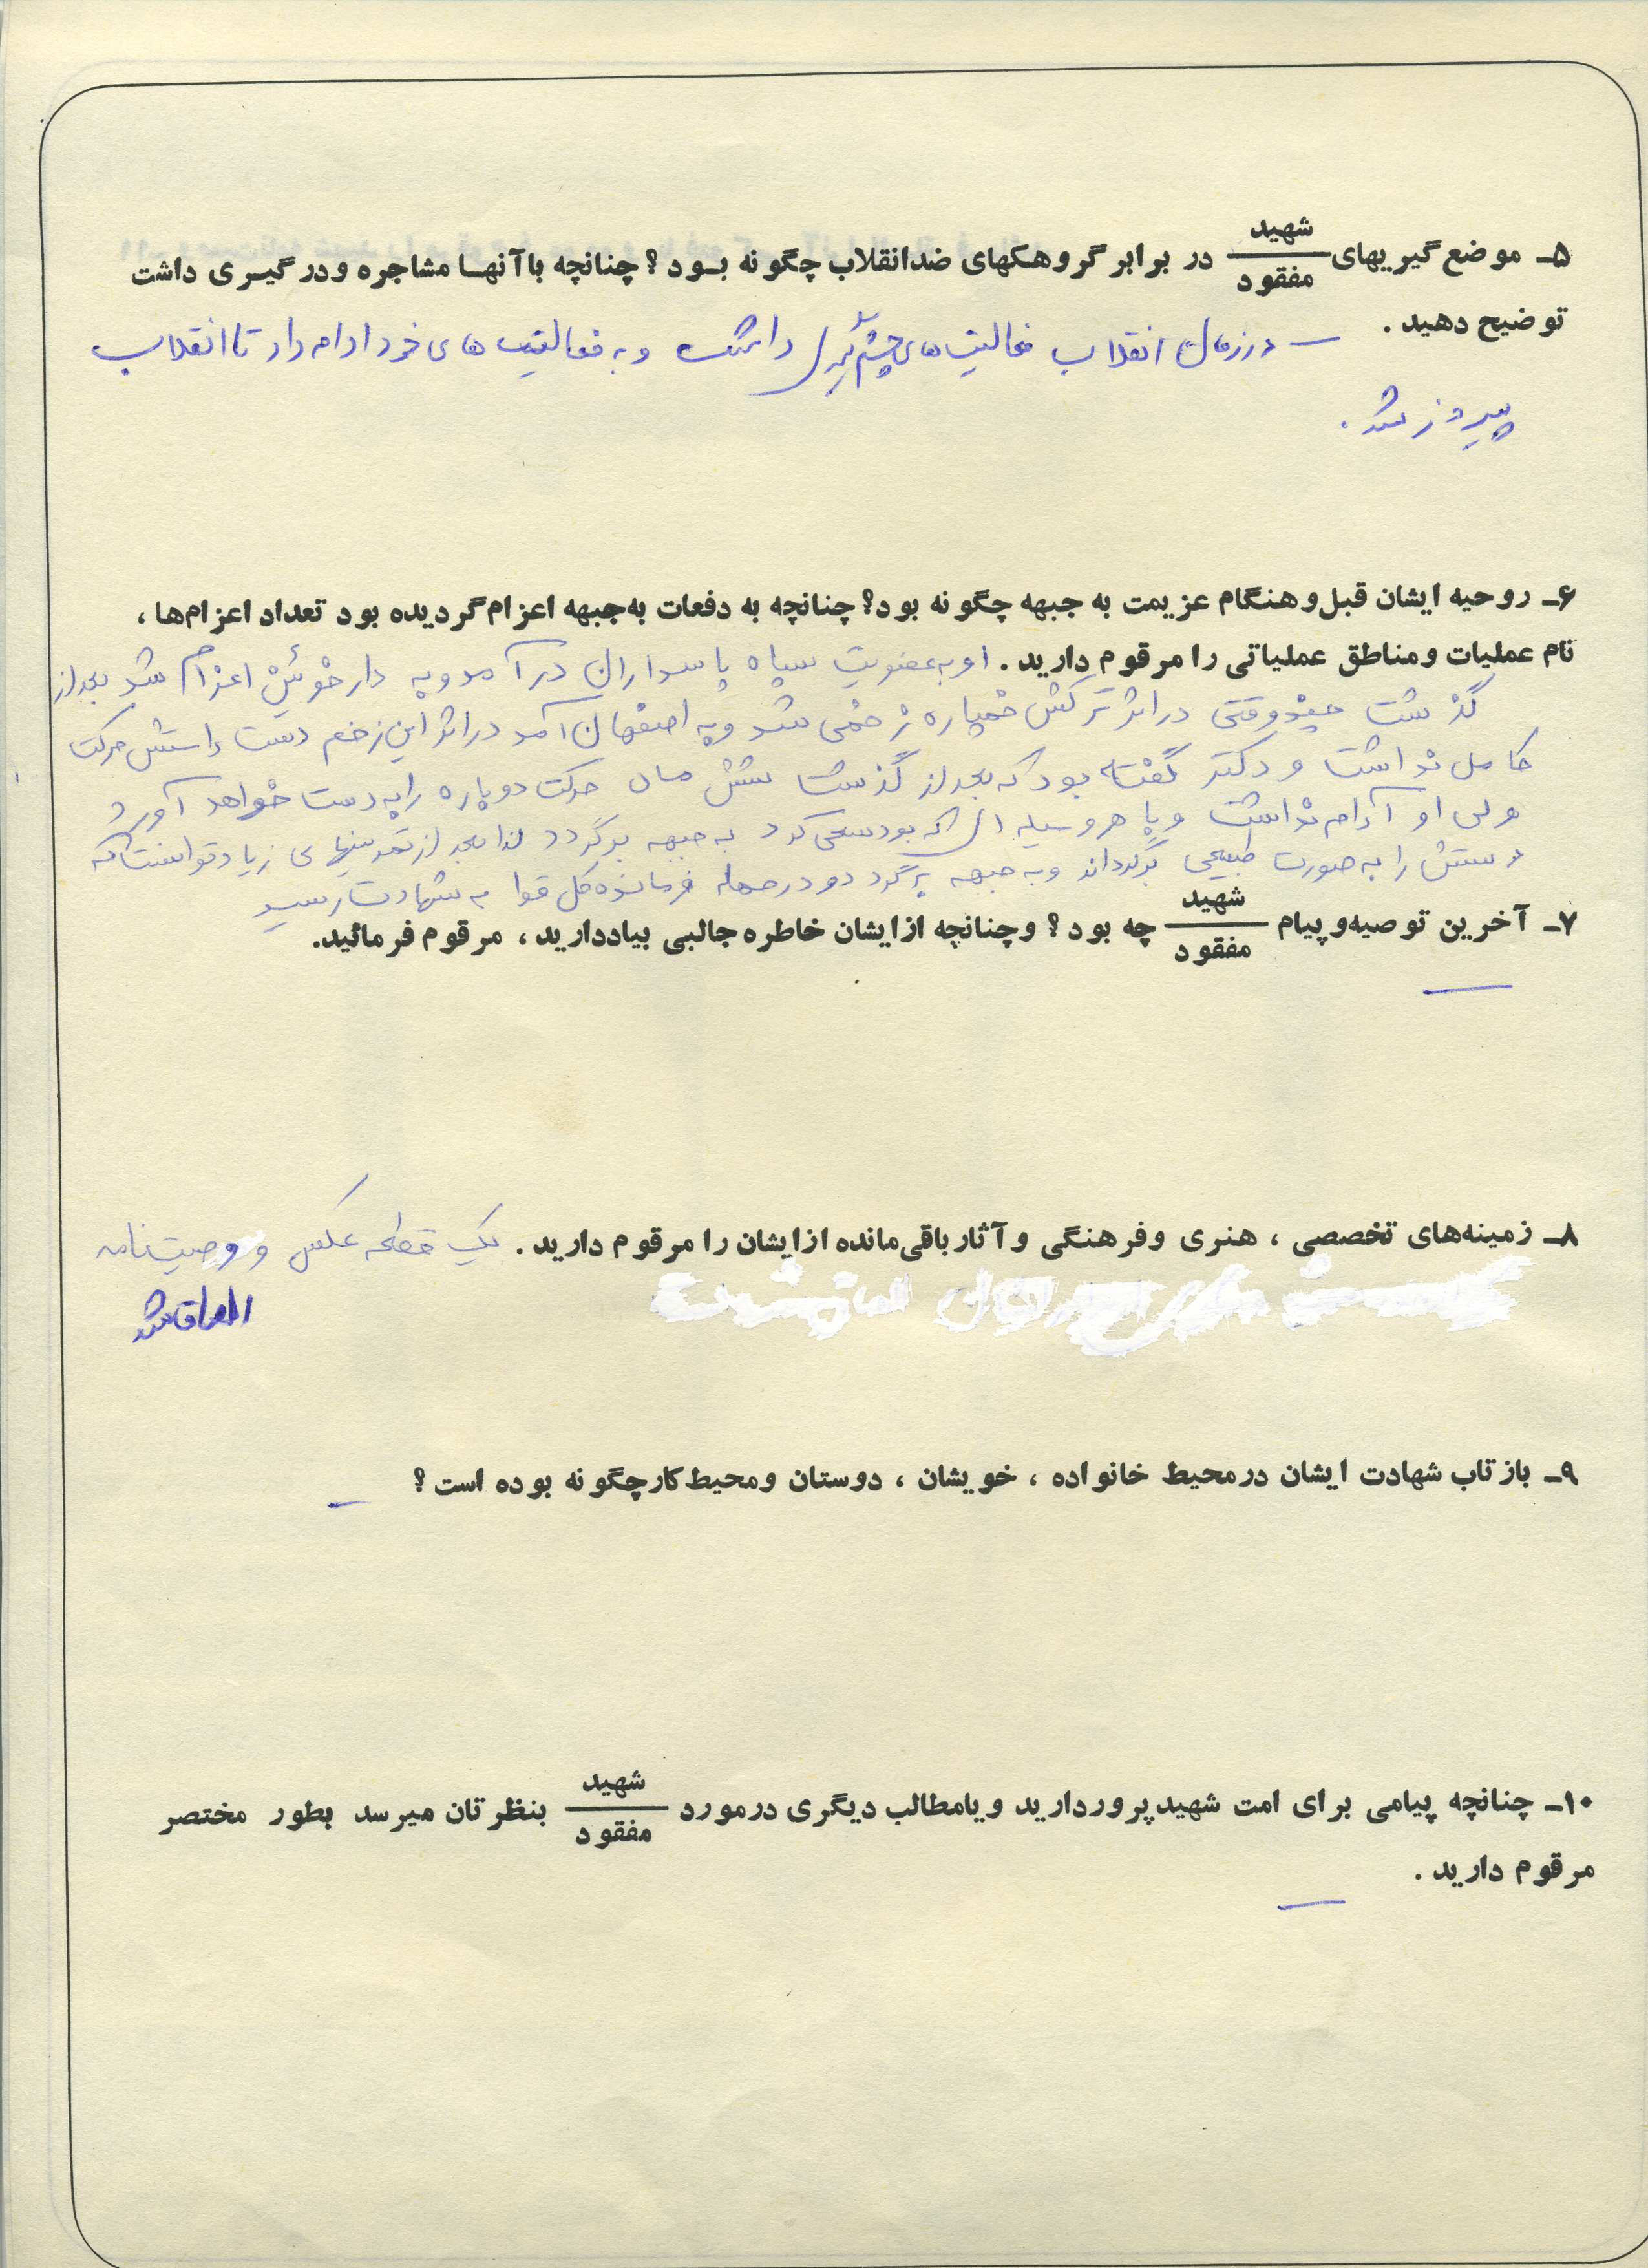 ۵ـ موضع گیریهای شهید / مفقود در برابر گروهکهای ضدانقلاب چگونه بود؟ چنانچه باآنها مشاجره ودرگیری داشت
توضیح دهید. ـ در زمان انقلاب فعالیت های چشم گیری داشت و به فعالیت های خود ادامه داد تا انقلاب
پیروز شد.
۶ـ روحیه ایشان قبل وهنگام عزیمت به جبهه چگونه بود؟ چنانچه به دفعات به جبهه اعزام گردیده بود تعداد اعزام‌ها،
نام عملیات ومناطق عملیاتی را مرقوم دارید. او به عضویت سپاه پاسداران در آمد و به دارخوئین اعزام شد بعد از
گذشت چند وقتی در اثر ترکش خمپاره زخمی شد و به اصفهان آمد در اثر این زخم دست راستش حرکت
کامل نداشت و دکتر گفته بود که بعد از گذشت شش ماه حرکت دوباره را به دست خواهد آورد
ولی او آرام نداشت و با هر وسیله ای که بود سعی کرد به جبهه برگردد لذا بعد از تمرینهای زیاد توانست که
دستش را به صورت طبیعی برگرداند و به جبهه برگردد و در حمله فرمانده کل قوا به شهادت رسید
۷ـ آخرین توصیه وپیام شهید / مفقود چه بود؟ وچنانچه ازایشان خاطره جالبی بیاددارید، مرقوم فرمائید.
ـ
۸ـ زمینه‌های تخصصی، هنری وفرهنگی وآثارباقی‌مانده ازایشان را مرقوم دارید. یک قطعه عکس و وصیت نامه
الصاق شد
۹ـ بازتاب شهادت ایشان درمحیط خانواده، خویشان، دوستان ومحیط کارچگونه بوده است؟ ـ
۱۰ـ چنانچه پیامی برای امت شهیدپروردارید ویامطالب دیگری درمورد شهید / مفقود بنظرتان میرسد بطور مختصر
مرقوم دارید.
ـ